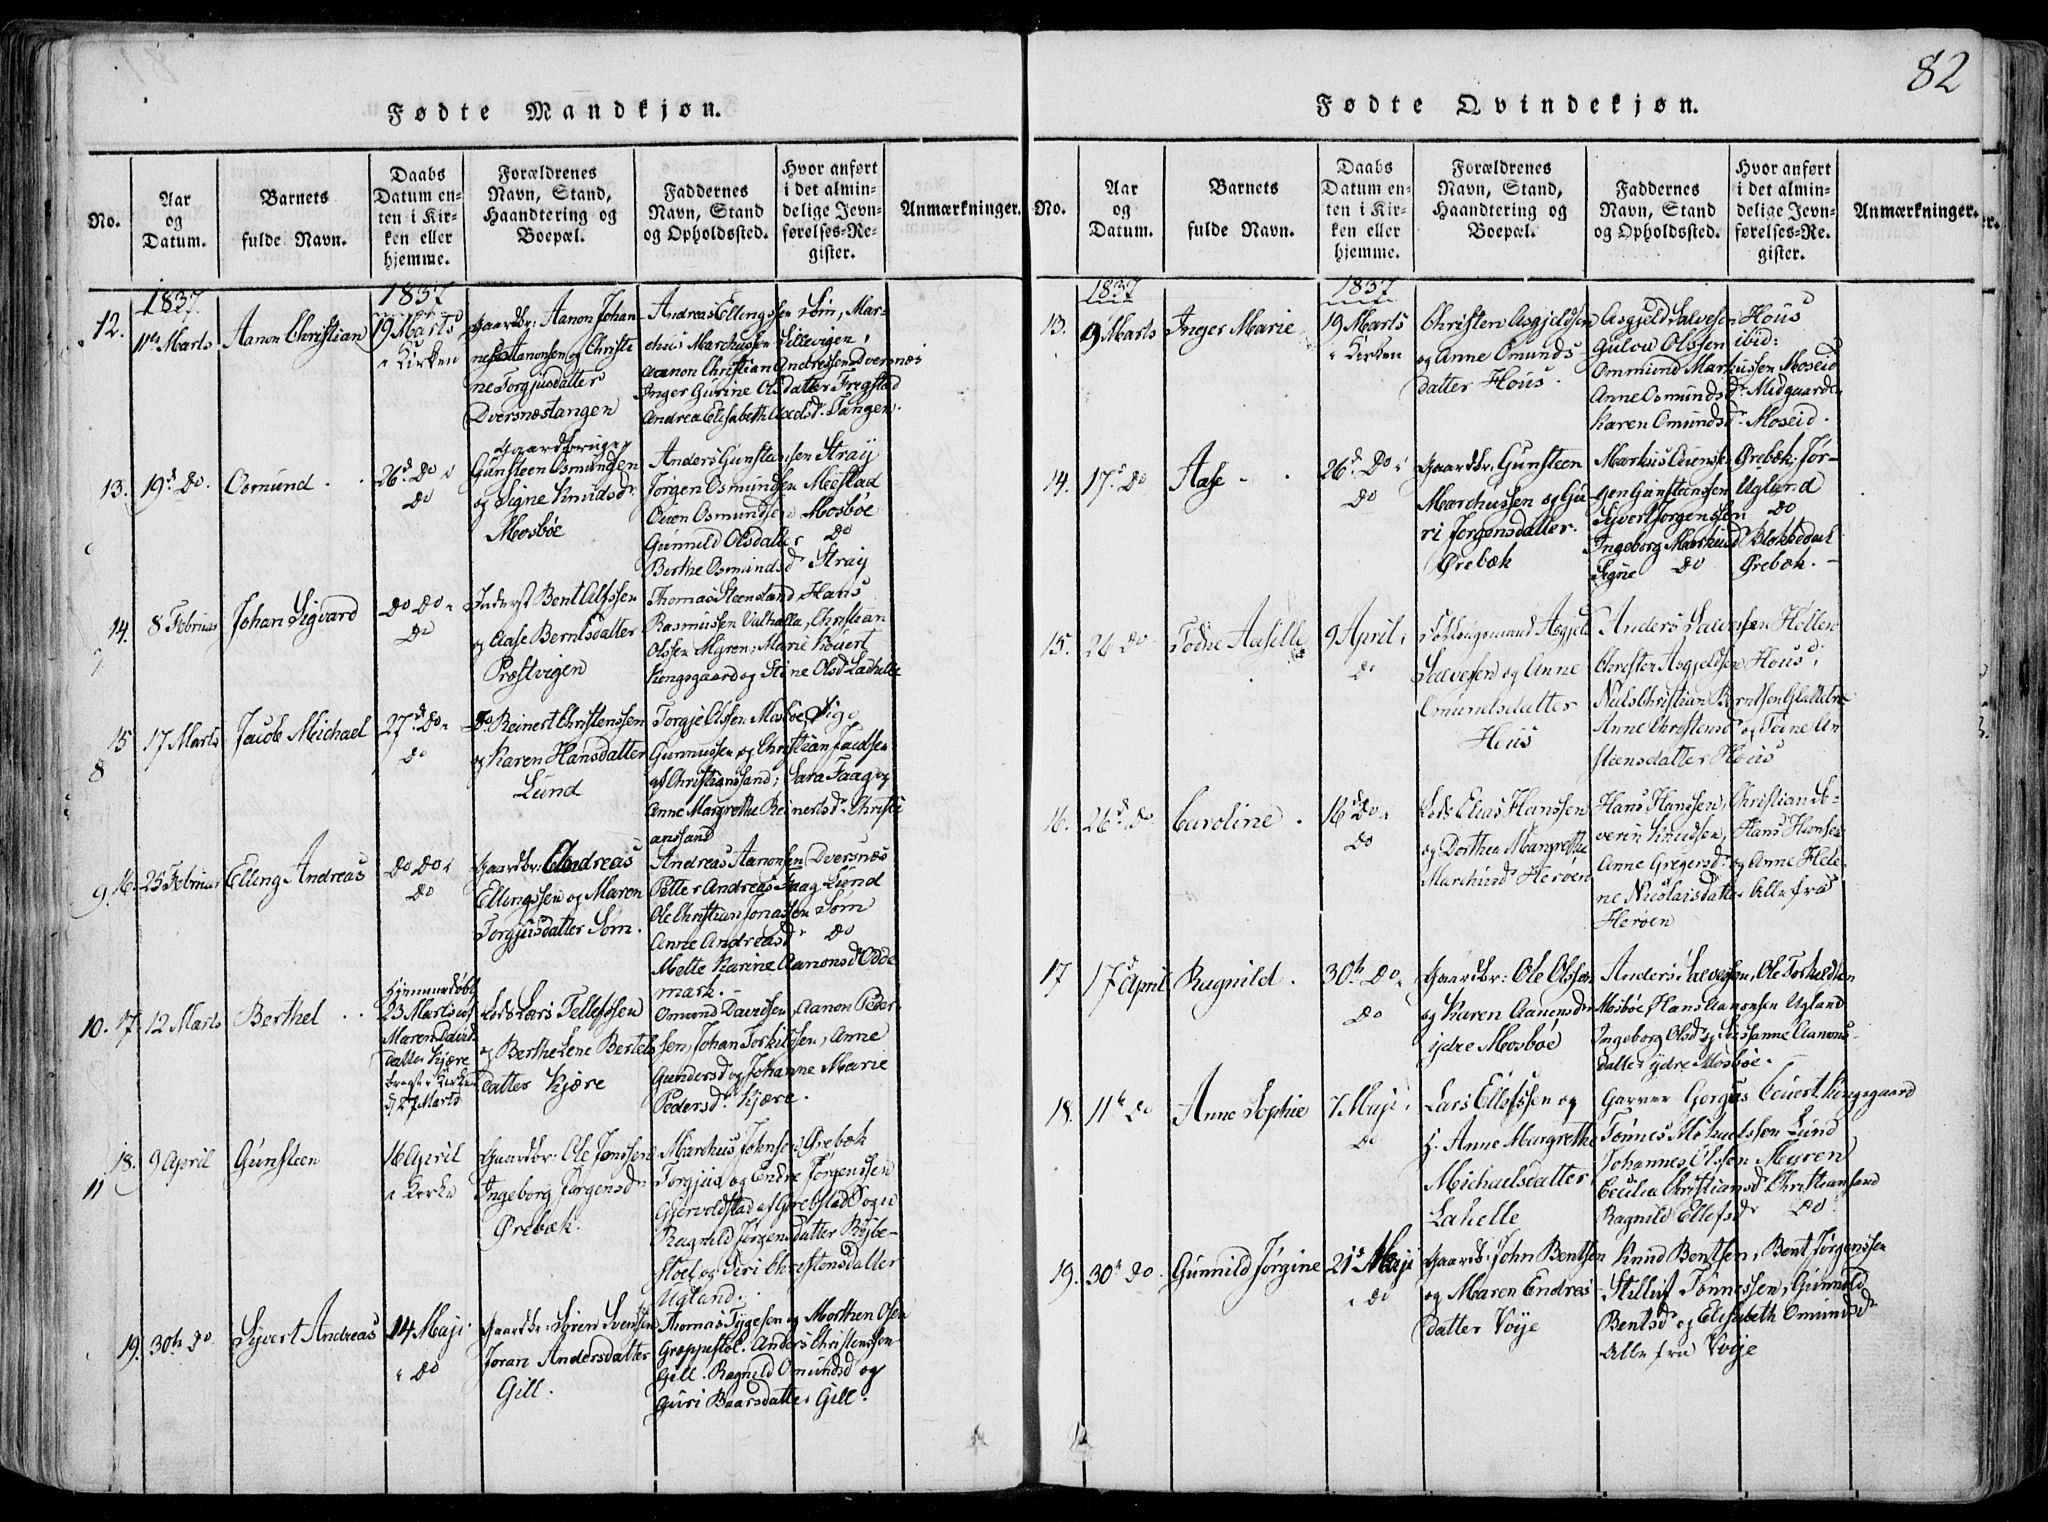 82
Fødte Mandkjøn.
No.
Aar
og
Datum.
Barnets
fulde Navn.
Daabs
Datum en-
ten i Kir-
ken eller
hjemme.
Forældrenes
Navn, Stand,
Haandtering og
Boepæl.
Faddernes
Navn, Stand
og Opholdssted.
Hvor anført
i det almin-
delige Jevn-
førelses-Re-
gister.
Anmærkninger.
1837.
1837
12.
11te Marts
Aanon Christian
19 Marts
i Kirken
Gaardbr: Aanon Johan-
nes Aanonsen og Christi
ne Torgjusdatter
Dversnæstangen
Andreas Ellingssen Söm, Mar-
chus Marchussen Lillevigen,
Aanon Christian Andressen Dversnæs
Inger Gurine Olsdatter Fregstad
Andrea Elisabeth Axelsd. Tangen.
13.
19d Do.
Osmund
26d Do i
Do
Gaardbruger
Gunsteen Osmunden
og Signe Knudsdr
Mosbøe
Anders Gunstensen Stray
Jørgen Osmundsen Meestad
Osmundsen Mosbøe
Gunnild Olsdatter Do
Berthe Osmundsd Stray
14.
8 Februar
Johan Sigvard
Do Do i
Do
Inderst Bent Alfssen
og Aase Berntsdatter
Præstvigen
Thomas Steensland Hans
Rasmussen Valhalla, Christian
Olssen Myren; Marie
Kongsgaard og Stine Olsd Lahelle
15
8
17 Marts
Jacob Michael
27d Do i
Do
Do Reinert Christenssen
og Karen Hansdatter
Lund
Torgje Olssen Mosbøe,
Gunnussen og Christian
af Christianssand; Sara Faag og
Anne Margrethe Reinertsdr Christi
anssand
9.
16.
25 Februar
Elling Andreas
Do Do i
Do
Gaardbr: Andreas
Ellingssen og Maren
Torgjusdatter Söm.
Andreas Aanonsen Dversnæs
Petter Andreas Faag Lund
Ole Christian Jonassen Söm
Anne Andreasdr Do
Mette Karine Aanonsd Odde
mark.
10.
17.
12 Marts
Berthel
Hjemmedøbt
23 Marts af
Maren David
datter Kjære
bragt i Kirken
d 27 Marts
Lods Lars Tellefssen
og Berthe Lene Bertels
datter Kjære
Omund Davidsen, Aanon Peder-
sen, Johan Torkildsen, Anne
Gundersd og Johanne Marie
Pedersdr Kjære.
18.
11
9 April
Gunsteen
16 April
i Kirke
Gaardbr: Ole Jonssen
Ingeborg Jørgensdr
Ørebæk.
Marchus Johnsen, Ørebæk
Torgjus og Endre Jørgenssen
Gjervoldstad af Grebstad Sogn
Ragnild Jørgensdatter Rejbe-
stoel og Siri Christensdatter
Ugland.
19.
30te Do
Syvert Andreas
14 Maji
i Do
Gaardbr: Sören Svensen
Joran Andersdatter
Gill.
Thomas Tygesen og Morthen Osen
Groppestöl. Anders Christenssen
Gill. Ragnild Omundsd og
Guri Baarsdatter Gill.
Fødte Qvindekjøn.
No.
Aar
og
Datum.
Barnets
fulde Navn.
Daabs
Datum en-
ten i Kir-
ken eller
hjemme.
Forældrenes
Navn, Stand,
Haandtering og
Boepæl.
Faddernes
Navn, Stand
og Opholdssted.
Hvor anført
i det almin-
delige Jevn-
førelses-Re-
gister.
Anmærkninger.
1837
1837
13.
9 Marts
Inger Marie
19 Marts
i Kirken
Christen Asgjeldsen
og Anne Omunds-
datter Hous.
Asgjeld Salvesen Hous
Gulou Olssen ibid:
Ommund Markussen Moseid
Anne Osmundsdr Midgaarden
Karen Osmundsdr Moseid.
14.
17d Do
Aase
26d Do i
Do
Gaardbr: Gunsteen
Marchussen og Gu
ri Jørgensdatter.
Ørebæk
Markus Ørebæk. Jør-
gen Gunsteenssen Ugland
Syvert Jørgenssen Do
Ingeborg Markusd
Signe Do Ørebæk.
15.
24 Do
Todne Aasille
9 April i
Do
Asgjeld
Salvesen og Anne
Omundsdatter
Hous
Anders Salvesen Höllen
Christer Asgjeldsen Hous,
Niels Christian Berntsen
Anne Christensd og Tone An
steensdatter Hous
16.
26d Do
Caroline
16d Do i
Do
Lods Elias Hanssen
og Dorthea Margrethe
Marchusd Herøen
Hans Hanssen, Christian Se-
verin Knudsen, Hans Hansen
Anne Gregersdr og Anne Hele-
ne Nicolaisdatter Alle fra
Herøen
17
17d April
Ragnild.
30te Do i
Do
Gaardbr: Ole Olssen
og Karen Aanensdr
ydre Mosbøe
Anders Salvesen, Ole Torkeldsen
Mosböe, Hans Aanonsen Ugland
Ingeborg Olsd og Susanne Aanons-
datter ydre Mosböe.
18.
11te Do
Anne Sophie
7 Maji i
Do
Lars Ellefssen og
H. Anne Margrethe
Michaelsdatter
Lahelle
Garver Gorgus Kongsgaard
Tönnes Michaelssen Lund
Johannes Olssen Myren
Cecilia Christiansd Christiansand
Ragnild Ellefsdr Do
19.
30te Do.
Gunnild Jørgine
21s Maji
i Do
Gaardb: John Bentsen
og Maren Endres-
datter Voje
Knud Bentsen, Bent Jørgenssen
Tönnessen, Gunnild
Bentsd og Elisabeth Omundsd
Alle fra Voje